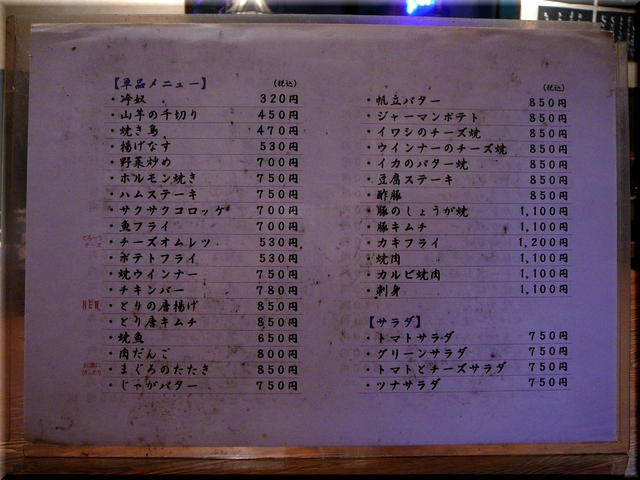 【単品メニュー】 (税込)
・冷奴 320円
・山芋の千切り 450円
・焼き鳥 470円
・揚げなす 530円
・野菜炒め 700円
・ホルモン焼き 750円
・ハムステーキ 750円
・サクサクコロッケ 700円
・魚フライ 700円
・チーズオムレツ 530円
・ポテトフライ 530円
・焼ウインナー 750円
・チキンバー 780円
NEW ・とりの唐揚げ 850円
・とり唐キムチ 850円
・焼魚 650円
・肉だんご 800円
・まぐろのたたき 850円
・じゃがバター 750円
(税込)
・帆立バター 850円
・ジャーマンポテト 850円
・イワシのチーズ焼 850円
・ウインナーのチーズ焼 850円
・イカのバター焼 850円
・豆腐ステーキ 850円
・酢豚 850円
・豚のしょうが焼 1,100円
・豚キムチ 1,100円
・カキフライ 1,200円
・焼肉 1,100円
・カルビ焼肉 1,100円
・刺身 1,100円
【サラダ】
・トマトサラダ 750円
・グリーンサラダ 750円
・トマトとチーズサラダ 750円
・ツナサラダ 750円